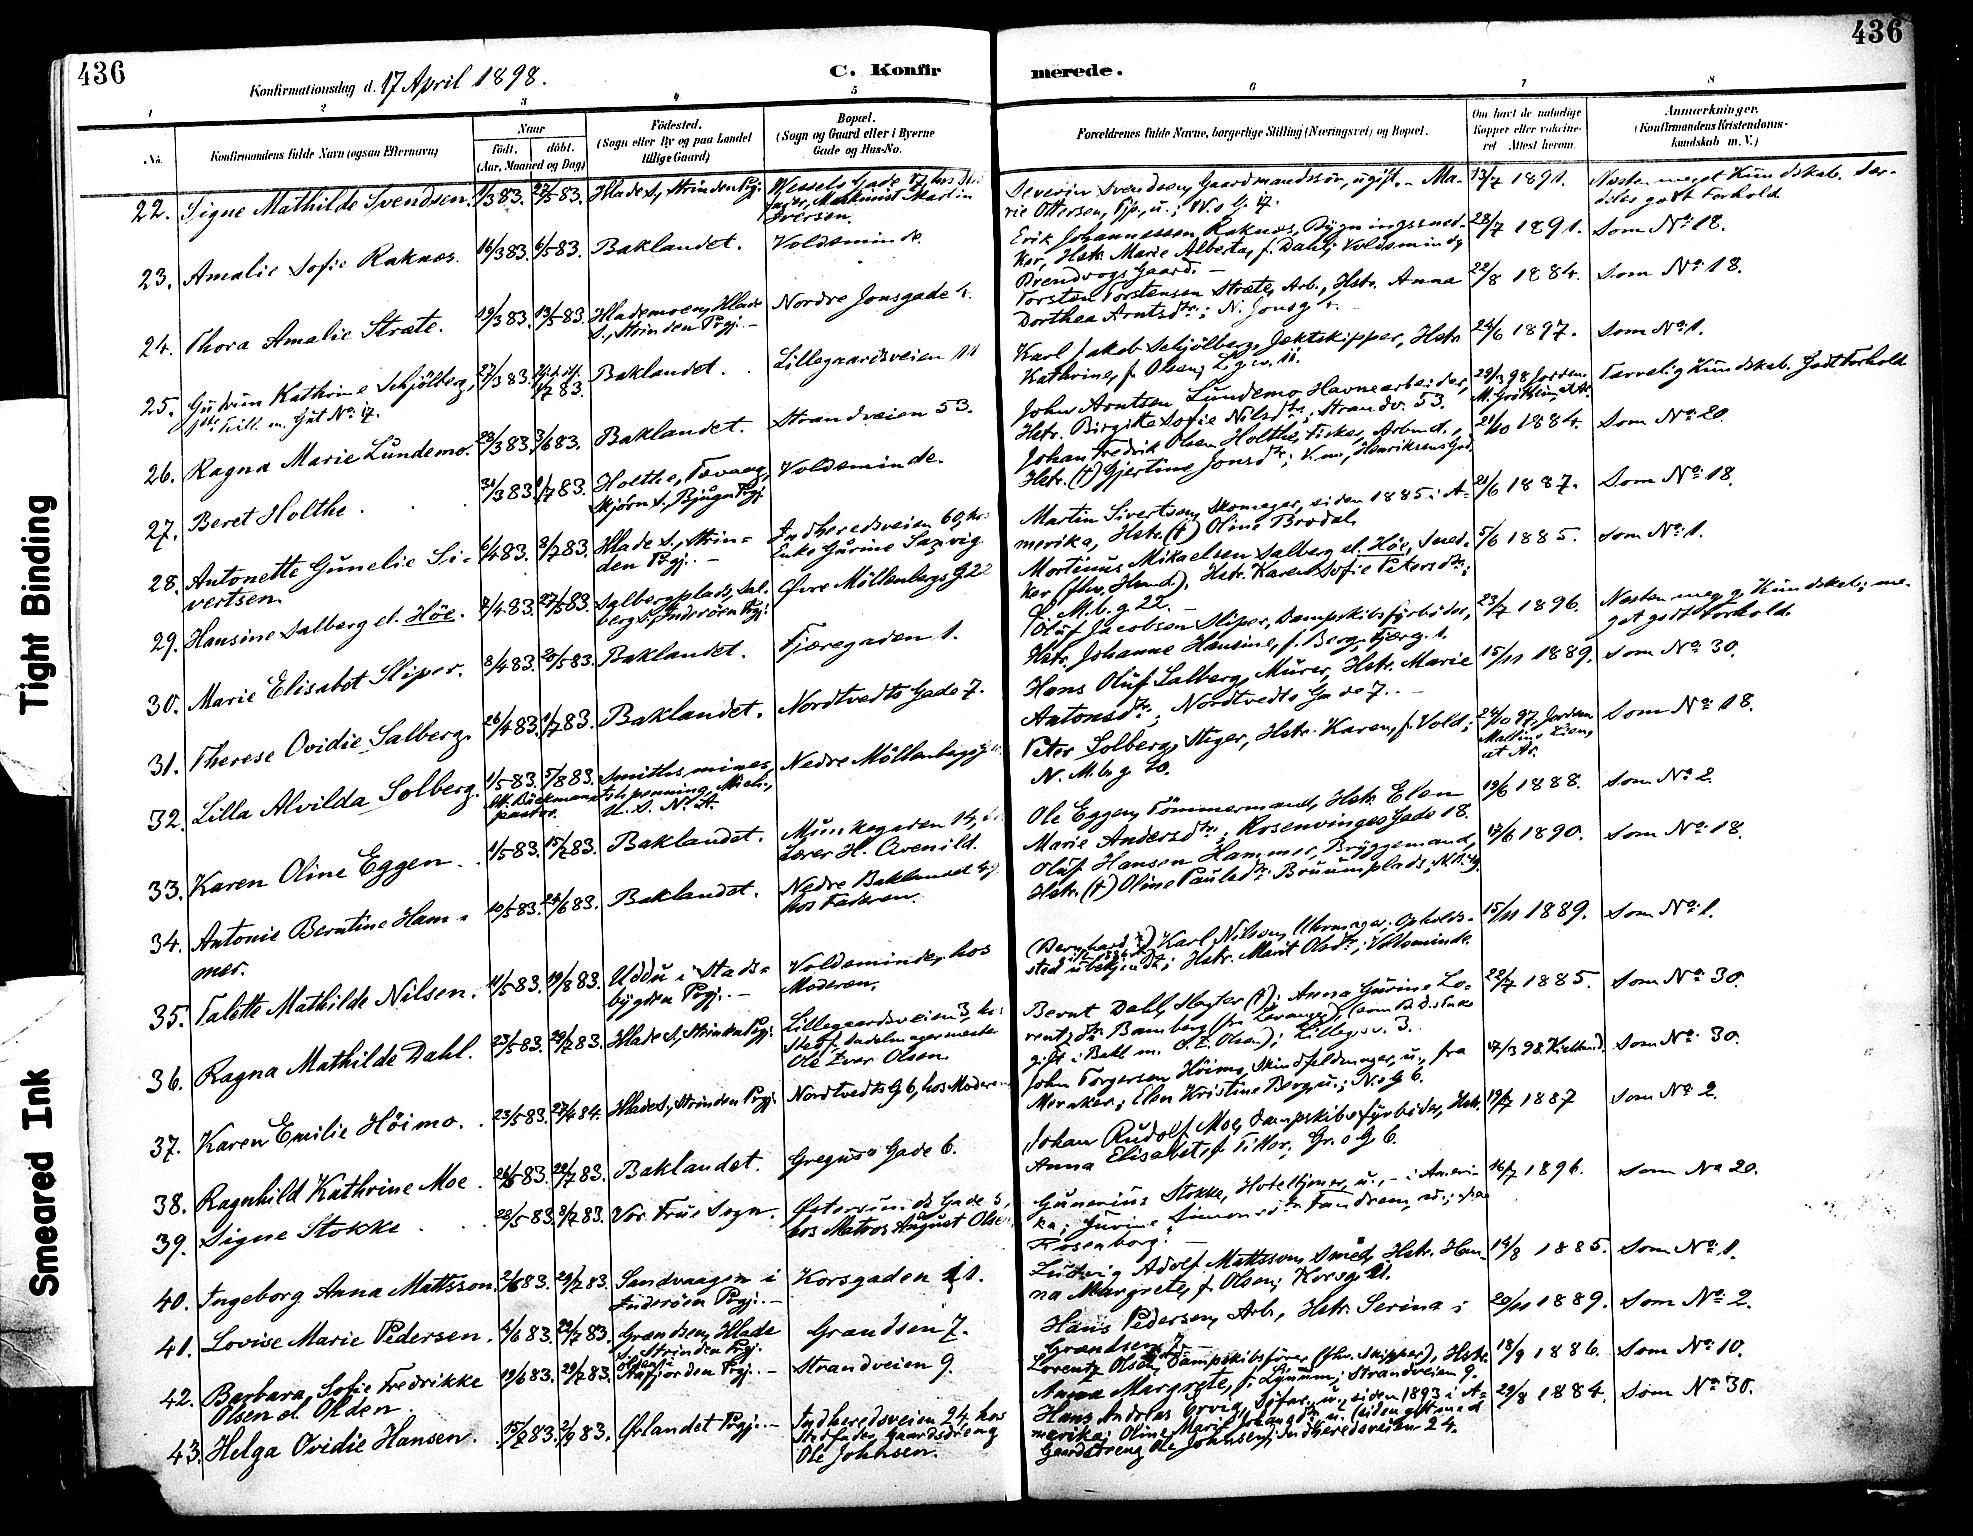 436
Konfirmationsdag d. 17 April 1898.
C. Konfir
merede.
436
1
2
3
4
5
6
7
8
No.
Konfirmandens fulde Navn (ogsaa Efternavn)
Naar
født.
døbt.
(Aar, Maaned og Dag)
Fødested.
(Sogn eller By og paa Landet
tillige Gaard)
Bopæl.
(Sogn og Gaard eller i Byerne
Gade og Hus-No.
Forældrenes fulde Navne, borgerlige Stilling (Næringsvei) og Bopæl.
Om havt de naturlige
Kopper eller vaccine-
ret Attest herom.
Anmærkninger.
(Konfirmandens Kristendoms-
kundskab m. V.)
22. Signe Mathilde Svendsen. 1/3 83. 27/5 83. Hlade S., Strinden Pgj.
Wessels Gade 17, hos
Maskinist Martin
Iversen.
Severin Svendsen, Gaardmandssøn, ugift. - Ma-
rie Ottersen, Pp., u.; W.s G. 17.
13/7 1891.
Næsten meget Kundskab. Sær-
deles godt Forhold.
23. Amalie Sofie Raknæs. 16/3 83. 6/5 83. Baklandet. Voldsminde.
Erik Johannessen Raknæs, Bygningssned-
ker, Hstr. Marie Alberta, f. Dahl; Voldsminde,
Brendvogs Gaard. -
28/7 1891. Som No. 18.
24. Thora Amalie Stræte. 19/3 83. 13/5 83. Hlademoen, Hlade
S., Strinden Pgj. -
Nordre Jonsgade 4.
Torsten Torstensen Stræte, Arb., Hstr. Anna
Dorthea Arntsdtr.; N. Jonsg. 4.
22/8 1884. Som No. 18.
25. Gudrun Kathrine Schjölberg,
jfr. Till. m. Gut No. 17.
27/3 83. 1/7 83. Baklandet. Lillegaardsveien 11
Karl Jakob Schjölberg, Jektskipper, Hstr.
Kathrine, f. Olsen; L.g.v. 11.
24/6 1897. Som No. 1.
26. Ragna Marie Lundemo. 23/3 83. 3/6 83. Baklandet. Strandveien 53.
John Arntsen Lundemo, Havnearbeider,
Hstr. Birgitte Sofie Nilsdtr.; Strandv. 53.
29/3 98. Jordem.
Tarvelig Kundskab. Godt Forhold
27. Beret Holthe. 31/3 83. 1/7 83. Holthe, Tevaag,
Skjörn S., Bjugn Pgj.
Voldsminde.
Johan Fredrik Olsen Holthe, Fisker, Arbmd.,
Hstr. (†) Gjertine Jonsdtr.; V.m., Henriksens Grd.
21/10 1884. Som No. 20
28. Antonette Gunelie Si-
vertsen.
6/4 83. 8/7 83. Hlade S., Strin-
den Pgj. -
Indheredsveien 60, hos
Enke Gurine Saxvig.
Martin Sivertsen, Skomager, siden 1885 i A-
merika, Hstr. (†) Oline Brodal.
21/6 1887. Som No. 18.
29. Hansine Salberg el. Höe. 7/4 83. 27/5 83. Salbergplads, Sal-
berg S., Inderöen Pgj.
Övre Möllenbergs G 22
Mortinus Mikaelsen Salberg el. Höe, Sned-
ker (fhv. Hmd.), Hstr. Karen Sofie Petersdtr.;
Ö. M.b. g. 22. -
5/6 1885. Som No. 1.
30. Marie Elisabet Sliper. 8/4 83. 20/5 83. Baklandet. Fjæregaden 1.
Oluf Jacobsen Sliper, Dampskibsfyrböder,
Hstr. Johanne Hansine, f. Berg; Fjærg. 1.
23/7 1896. Næsten meg. g. Kundskab; me-
get godt Forhold.
31. Therese Ovidie Salberg. 26/4 83. 1/7 83. Baklandet. Nordtvedts Gade 7.
Hans Oluf Salberg, Murer, Hstr. Marie
Antonsdtr.; Nordtvedts Gade 7. -
15/11 1889. Som No. 30.
32. Lilla Alvilda Solberg. 1/5 83. 5/8 83. Smiths mines,
Ishpenning, Mich.,
U. S. N. A.
Nedre Möllenbergsg.
Peter Solberg, Stiger, Hstr. Karen, f. Vold;
N. M.b. g. 20.
24/10 97, Jordem.
Som No. 18.
33. Karen Oline Eggen. 1/5 83. 15/7 83. Baklandet. Munkegaden 14,
Lærer H. Qvenild.
Ole Eggen, Tömmermand, Hstr. Elen
Marie Andersdtr.; Rosenvinges Gade 18.
19/6 1888. Som No. 2.
34. Antonie Berntine Ham-
mer.
10/5 83. 24/6 83. Baklandet. Nedre Baklandet
hos Faderen.
Oluf Hansen Hammer, Bryggemand,
Hstr. (†) Oline Paulsdtr.
17/6 1890. Som No. 18.
35. Talette Mathilde Nilsen. 11/5 83. 19/8 83. Uddu i Stads-
bygden Pgj. -
Voldsminde, hos
Moderen.
(Bernhard) Karl Nilsen, Uhrmager, Opholds-
sted ubekjendt; Hstr. Marit Olsdtr.; Voldsminde.
15/11 1889. Som No. 1.
36. Ragna Mathilde Dahl. 23/5 83. 29/7 83. Hlade S., Strinden Pgj.
Lillegaardsveien 3, hos
Stedf. Sadelmagermester
Ole Ever Olsen.
Bernt Dahl, Slagter (†); Anna Gurine Lo-
rentzdtr. Bamberg (fra Levanger),
gift i Bakl. m. O. E. Olsen); Lillegv. 3.
22/7 1885. Som No. 30.
37. Karen Emilie Höimo. 23/5 83. 27/4 84. Hlade S., Strinden Pgj. Nordtvedts G 6, hos Moderen
John Torgersen Höimo, Skindfeldmager, u., fra
Meraker; Elen Kristine Berg, u.; N.s G 6.
17/3 98. Kielland. Som No. 30.
38. Ragnhild Kathrine Moe. 26/5 83. 22/7 83. Baklandet. Gregus' Gade 6.
Johan Rudolf Moe, Dampskibsfyrböder, Hstr.
Anna Elisabet, f. Fikler; Gr.s G 6.
19/7 1887 Som No. 2.
39. Signe Stokke. 28/5 83. 8/7 83. Vor Frue Sogn. Östersunds Gade 3,
hos Matros August Olsen
Gunerius Stokke, Hoteltjener, u., - i Ameri-
ka; Gurine Simonsdtr. Fandrem, u.;
Rosenborg. -
16/7 1896. Som No 20.
40. Ingeborg Anna Mattsson. 2/6 83. 29/7 83. Sandvaagen i
Inderöen Pgj. -
Korsgaden 11.
Ludvig Adolf Mattsson, Smed, Hstr. Han-
na Margrete, f. Olsen; Korsg. 11.
14/8 1885. Som No. 1.
41. Lovise Marie Pedersen. 4/6 83. 29/7 83. Grændsen, Hlade
S., Strinden Pgj.
Grændsen 7.
Hans Pedersen, Arb., Hstr. Serina;
Grændsen 7. -
20/11 1889. Som No. 2.
42. Barbara Sofie Fredrikke
Olsen el. Olden.
19/6 83. 29/7 83. Olden i
Stafjorden Pgj. -
Strandveien 9.
Lorentz Olsen, Dampskibsförer (fhv. Skipper), Hstr.
Anna Margrete, f. Lymum; Strandveien 9.
18/9 1886. Som No. 10.
43. Helga Ovidie Hansen. 15/7 83. 2/9 83. Örlandet Pgj. -
Indheredsveien 24, hos
Stedfader, Gaardsdreng
Ole Johnsen.
Hans Andreas Ervig, Söfar., u., siden 1893 i A-
merika; Oline Marie Johansdtr., u. (siden gift med
Gaardsdreng Ole Johnsen); Indheredsveien 24.
29/8 1884. Som No. 30.
Tight Binding
Smeared Ink